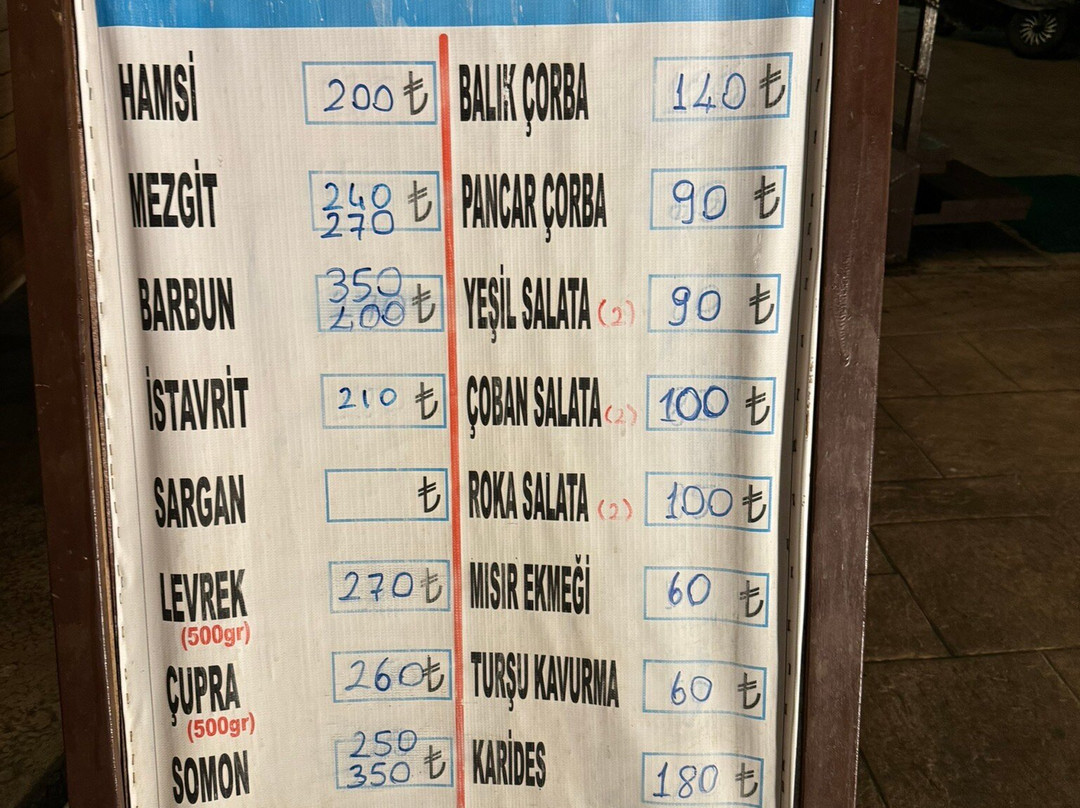 HAMSİ 200 ₺
MEZGİT 240 ₺
270
BARBUN 350 ₺
İSTAVRİT 210 ₺
SARGAN ₺
LEVREK 270 ₺
(500gr)
ÇUPRA 260 ₺
(500gr)
SOMON 250 ₺
350
BALIK ÇORBA 140 ₺
PANCAR ÇORBA 90 ₺
YEŞİL SALATA (2) 90 ₺
ÇOBAN SALATA (2) 100 ₺
ROKA SALATA (2) 100 ₺
MISIR EKMEĞİ 60 ₺
TURŞU KAVURMA 60 ₺
KARİDES 180 ₺